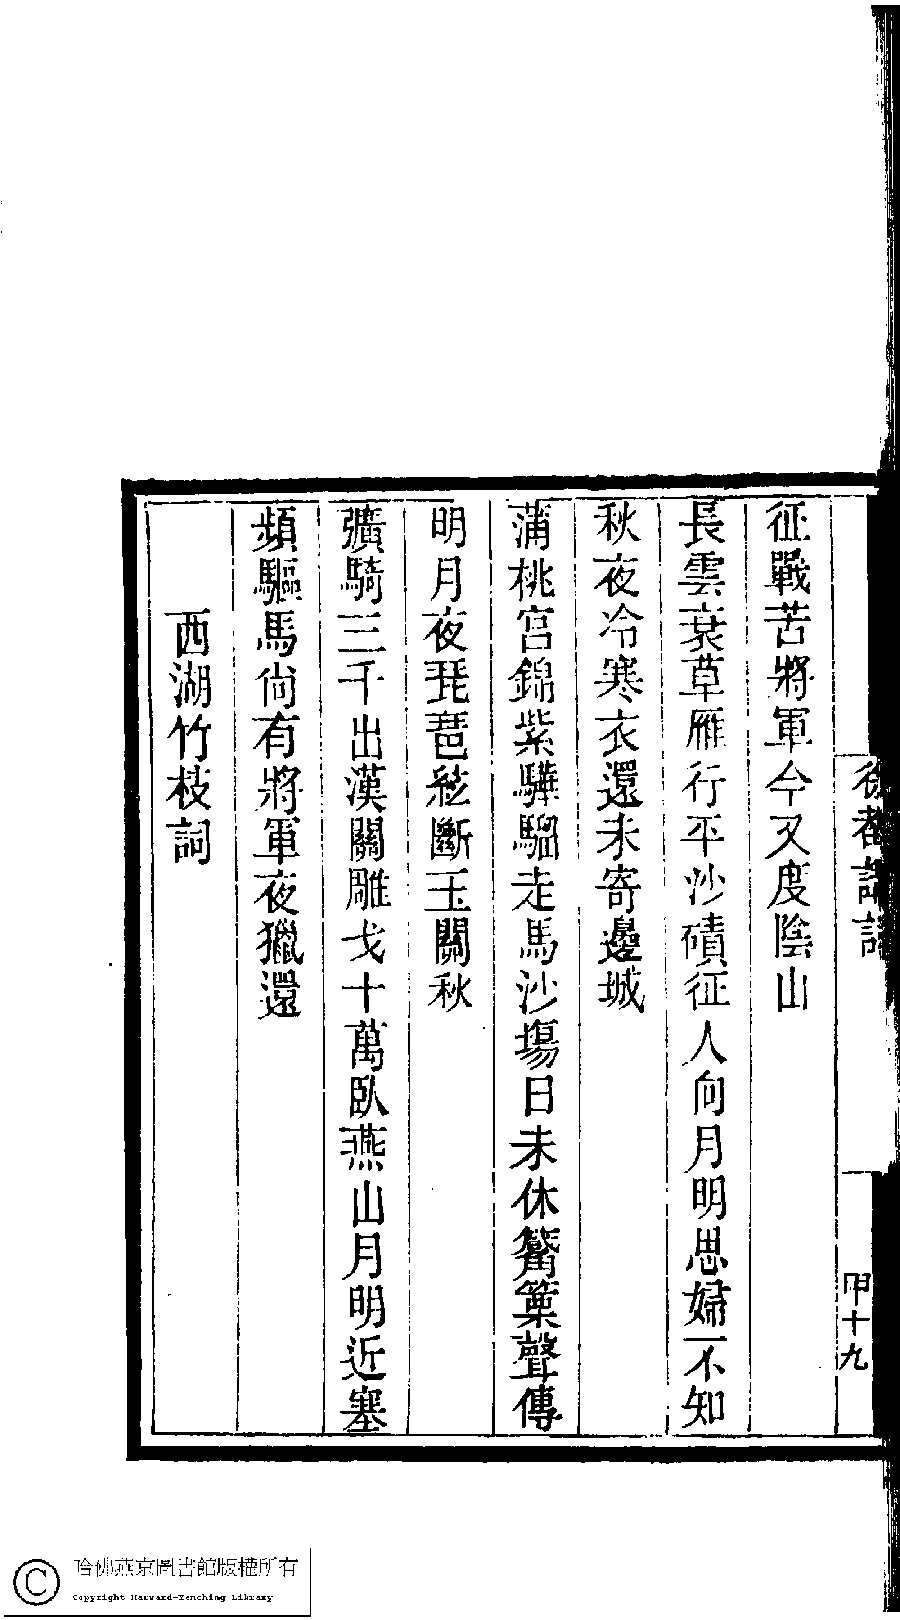 征戰苦將軍今又度陰山
長雲衰草雁行平沙磧征人向月明思婦不知
秋夜冷寒衣還未寄邊城
蒲桃宮錦紫驊騮走馬沙場日未休觱篥聲傳
明月夜琵琶絃斷玉關秋
彍騎三千出漢關雕戈十萬臥燕山月明近塞
頻驅馬尙有將軍夜獵還
西湖竹枝詞
甲十九
哈佛燕京圖書館版權所有
Copyright Harvard-Yenching Library